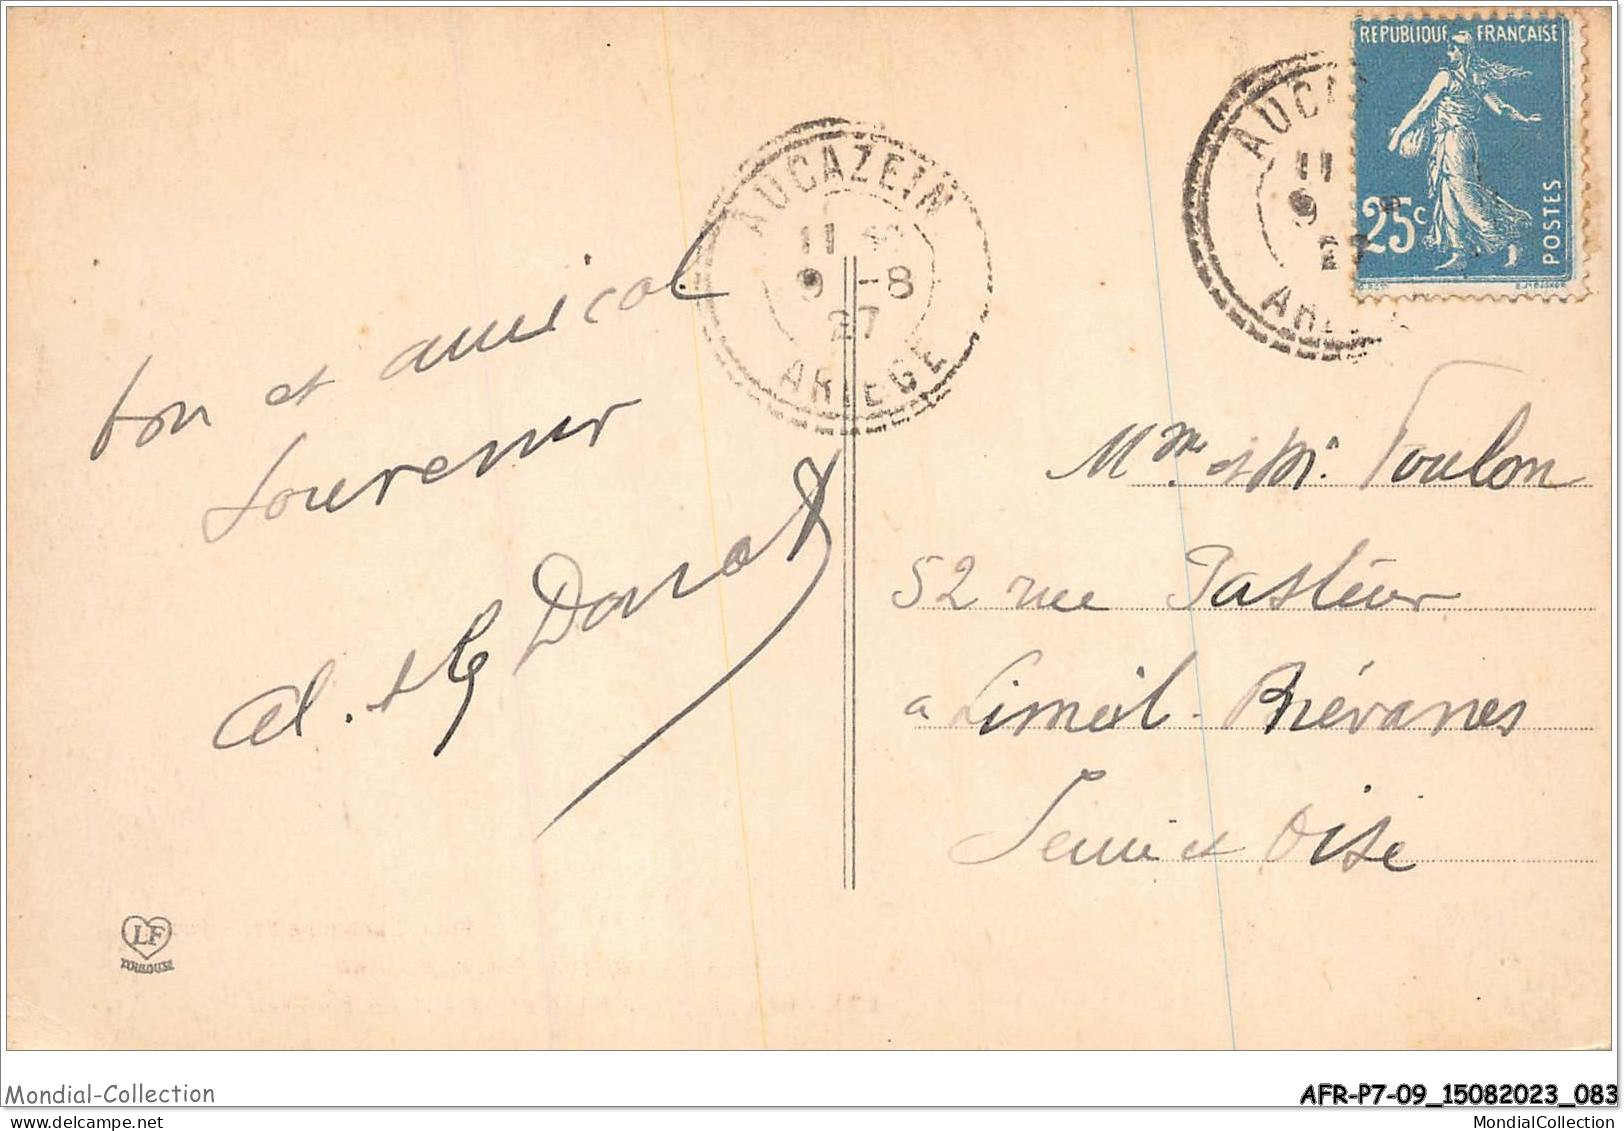 RÉPUBLIQUE FRANÇAISE
25c
POSTES
AUCAZEIN
11
9 -8
27
ARIEGE
AUC
11
9
27
bon et amical
souvenir
al. et G Donat
Mme et M. Toulon
52 rue Pasteur
a Limeil-Brévanes
Seine et Oise
LF
TOULOUSE
Mondial-Collection
AFR-P7-09_15082023_083
delcampe.net
MondialCollection